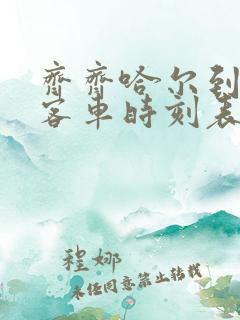 齐齐哈尔到
客车时刻表
程娜
未经同意禁止转载